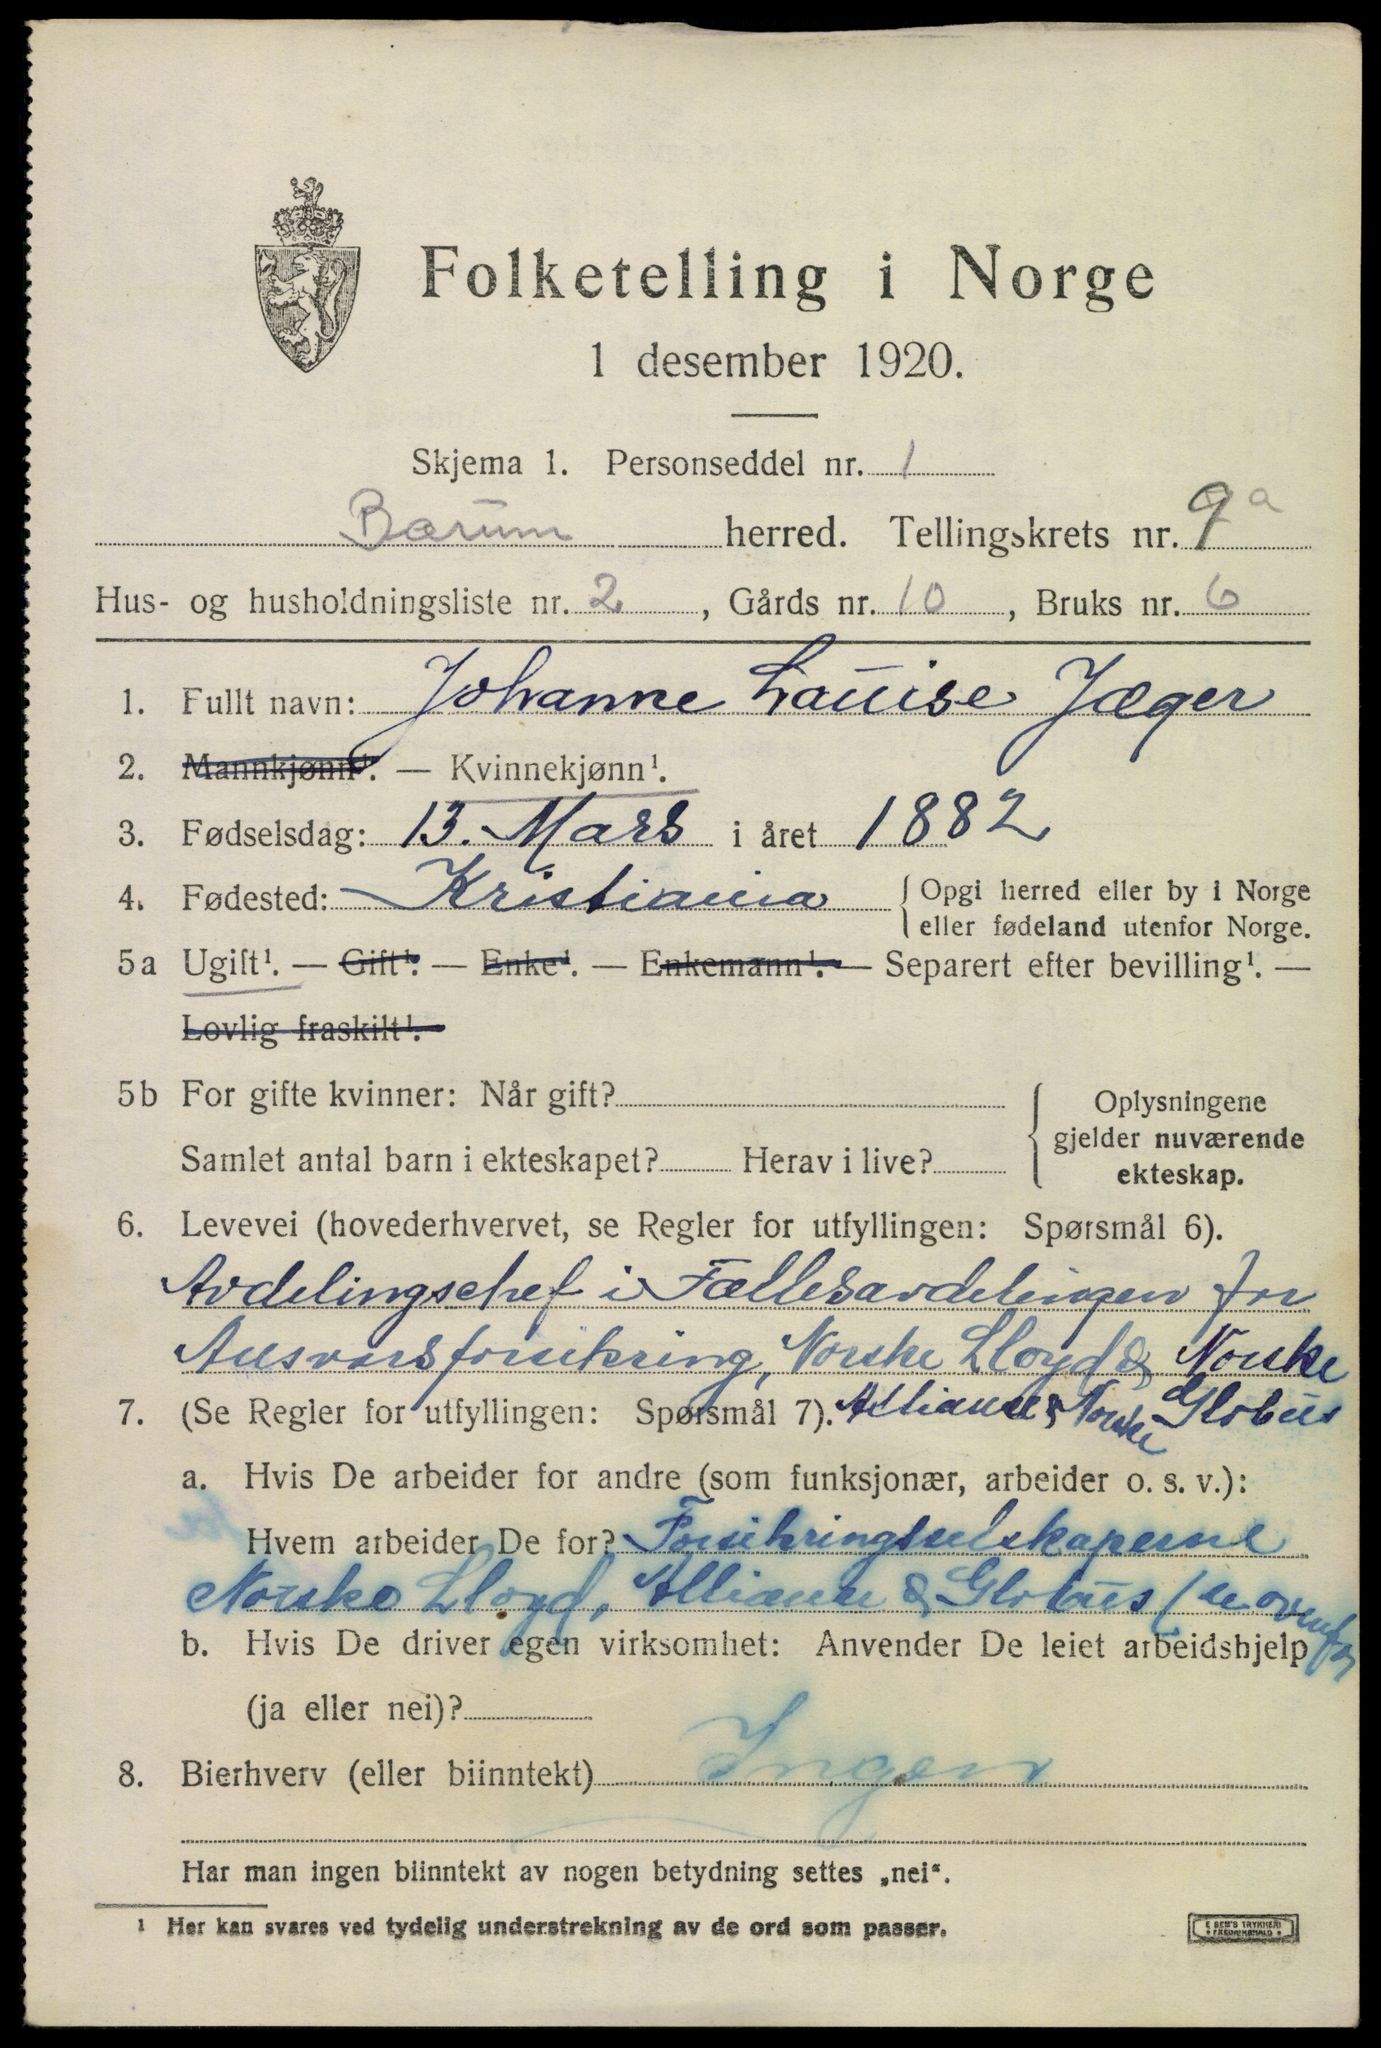 Folketelling i Norge
1 desember 1920.
Skjema 1. Personseddel nr. 1
Bærum herred. Tellingskrets nr. 9a
Hus- og husholdningsliste nr. 2, Gårds nr. 10, Bruks nr. 6
1. Fullt navn: Johanne Louise Jæger
2. Mannkjønn¹. — Kvinnekjønn¹.
3. Fødselsdag: 13. Mars i året 1882
4. Fødested: Kristiania { Opgi herred eller by i Norge
eller fødeland utenfor Norge.
5a Ugift¹. — Gift¹. — Enke¹. — Enkemann¹. — Separert efter bevilling¹. —
Lovlig fraskilt¹.
5b For gifte kvinner: Når gift? { Oplysningene
gjelder nuværende
Samlet antal barn i ekteskapet? Herav i live?
ekteskap.
6. Levevei (hovederhvervet, se Regler for utfyllingen: Spørsmål 6).
Avdelingschef i Fællesavdelingen for
Ansvarsforsikring, Norske Lloyd & Norske
7. (Se Regler for utfyllingen: Spørsmål 7). Alliance & Norske Globus
a. Hvis De arbeider for andre (som funksjonær, arbeider o. s. v.):
Hvem arbeider De for? Forsikringsselskaperne
Norske Lloyd, Alliance & Globus (se ovenfor
b. Hvis De driver egen virksomhet: Anvender De leiet arbeidshjelp
(ja eller nei)?
8. Bierhverv (eller biinntekt) Ingen
Har man ingen biinntekt av nogen betydning settes „nei“.
¹ Her kan svares ved tydelig understrekning av de ord som passer.
E SEM'S TRYKKERI
FREDRIKSHALD